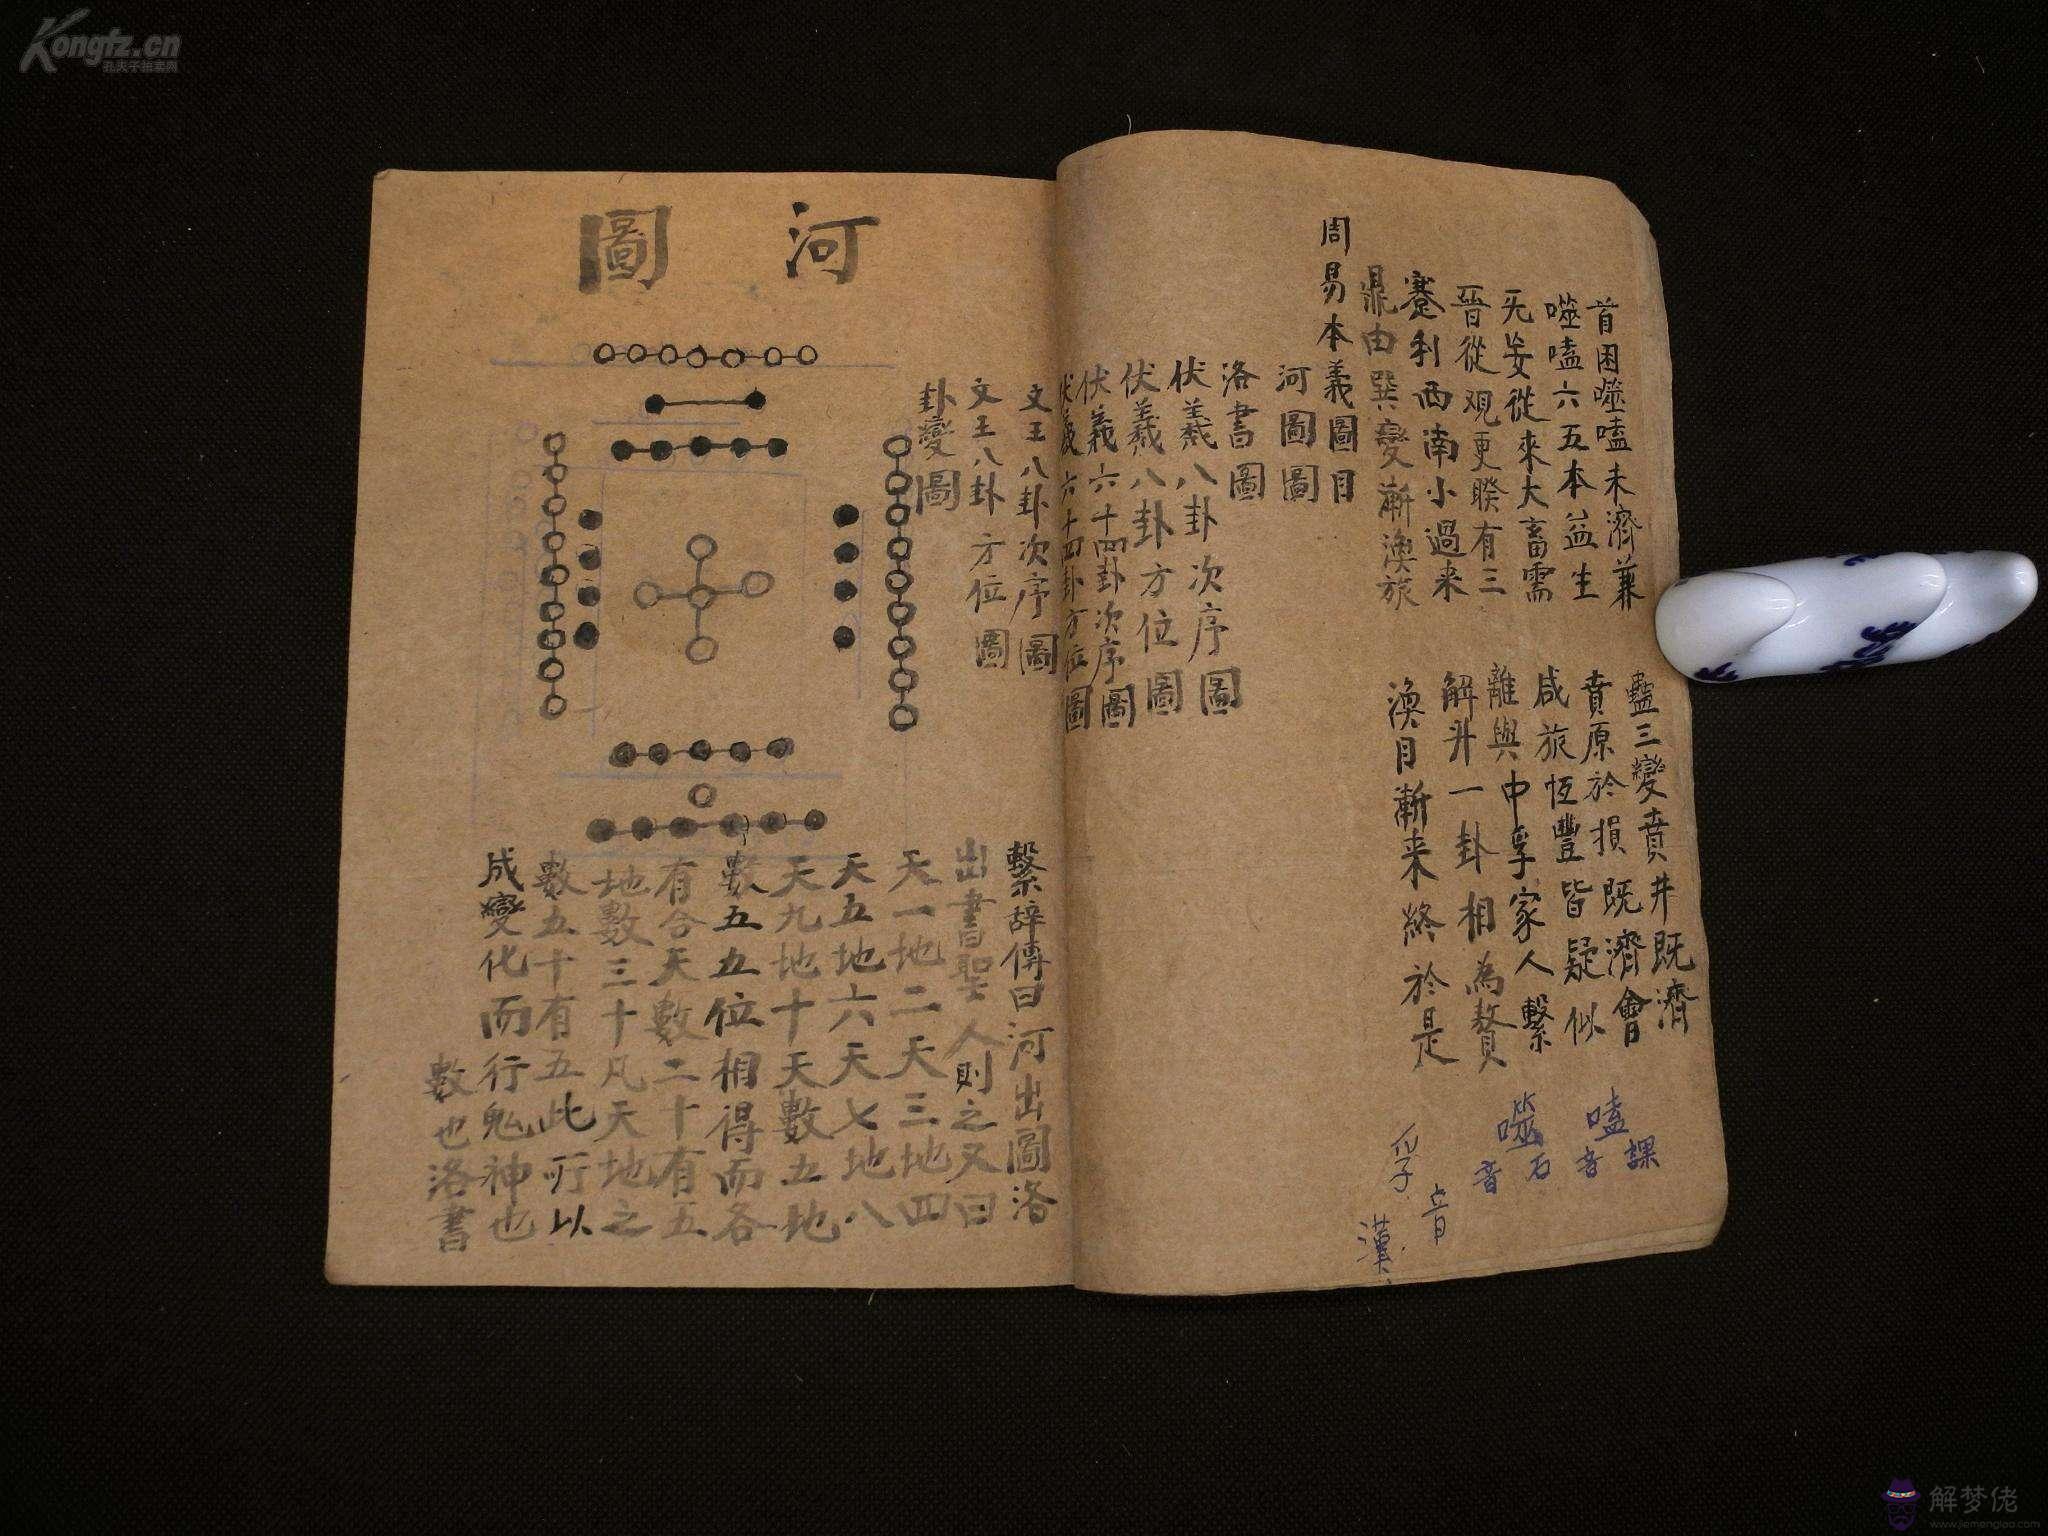 Kongfz.cn
孔夫子拍卖网
首困噬嗑未濟兼
噬嗑六五本益生
无妄從來大畜需
晉從观更睽有三
蹇利西南小過来
鼎由巽變漸渙旅
蠱三變賁井既濟
賁原於損既濟會
咸旅恆豐皆疑似
離與中孚家人繫
解升一卦相為贅
渙目漸来終於是
嗑
音課
噬
音石
孚
音
漢
周易本義圖目
河圖圖
洛書圖
伏羲八卦次序圖
伏羲八卦方位圖
伏羲六十四卦次序圖
伏羲六十四卦方位圖
文王八卦次序圖
文王八卦方位圖
卦變圖
河圖
繫辞傳曰河出圖洛
出書聖人則之又曰
天一地二天三地四
天五地六天七地八
天九地十天數五地
數五五位相得而各
有合天數二十有五
地數三十凡天地之
數五十有五此所以
成變化而行鬼神也
數也洛書
解梦佬
www.jiemenglao.com